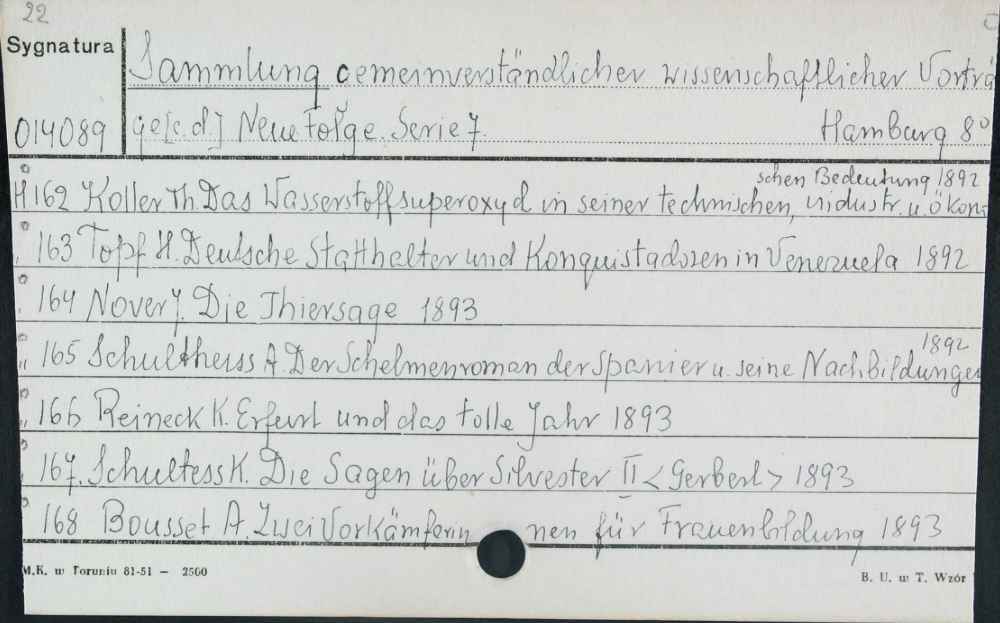 22
Sygnatura
014089
Sammlung cemeinverständlicher wissenschaftlicher Vorträ
ge [c.d.] Neue Folge. Serie 7. Hamburg 8°
schen Bedeutung 1892
H 162 Koller Th. Das Wasserstoffsuperoxyd in seiner technischen, industr. u. ökon
163 Topf H. Deutsche Statthalter und Konquistadoren in Venezuela 1892
164 Nover J. Die Thiersage 1893
1892
" 165 Schultheiss A. Der Schelmenroman der Spanier u. seine Nachbildungen
" 166 Reineck K. Erfurt und das tolle Jahr 1893
167. Schultess K. Die Sagen über Silvester II <Gerbert> 1893
168 Bousset A. Zwei Vorkämferinnen für Frauenbildung 1893
M.K. w Toruniu 81-51 — 2500
B. U. w T. Wzór